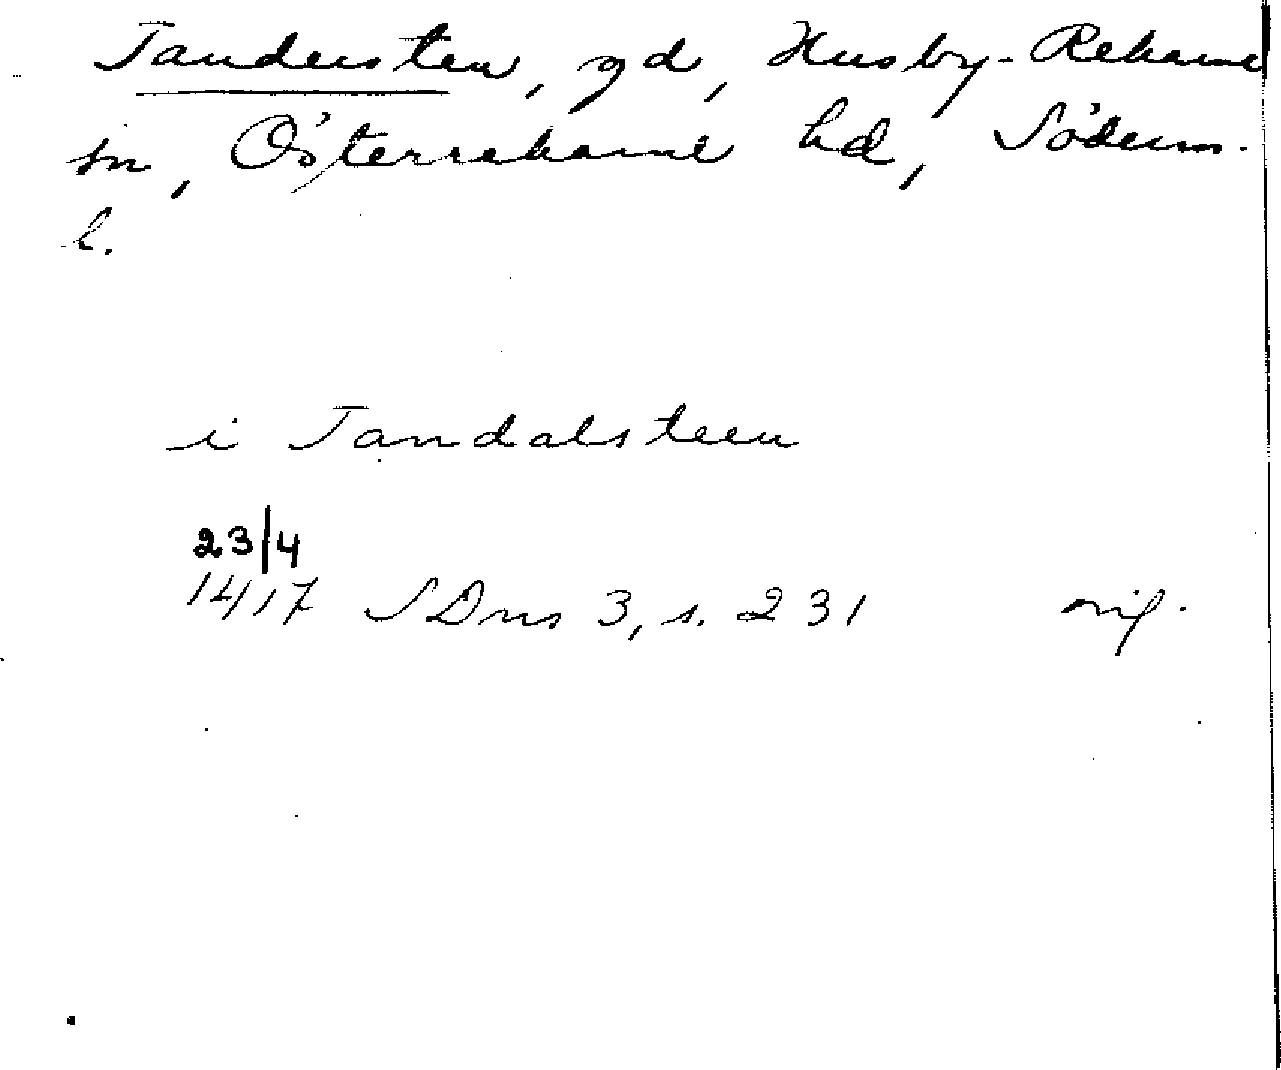 Tandersten, gd, Husby-Rekarne
sn, Österrekarne hd, Söderm.
l.
i Tandalsteen
23/4
1417 SDns 3, s. 231 orig.